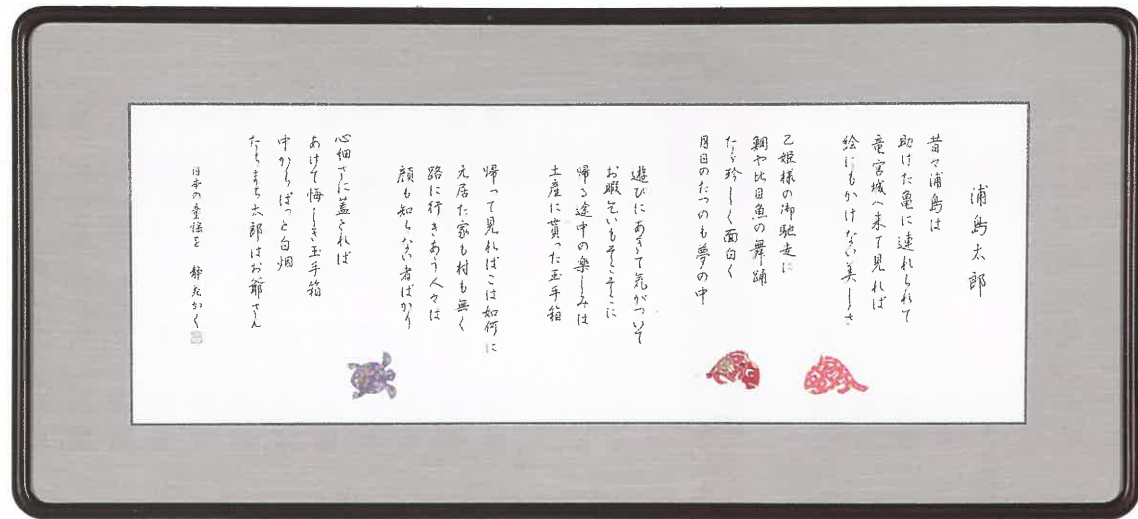 浦島太郎
昔々浦島は
助けた亀に連れられて
竜宮城へ来て見れば
絵にもかけない美しさ
乙姫様の御馳走に
鯛や比目魚の舞踊
たゞ珍しく面白く
月日のたつのも夢の中
遊びにあきて気がついて
お暇乞いもそこそこに
帰る途中の楽しみは
土産に貰った玉手箱
帰って見ればこは如何に
元居た家も村も無く
路に行きあう人々は
顔も知らない者ばかり
心細さに蓋とれば
あけて悔しき玉手箱
中からぱっと白烟
たちまち太郎はお爺さん
日本の童謡を かく